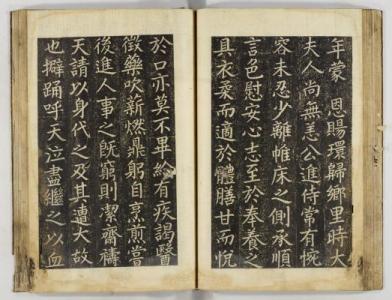 年蒙　恩賜環歸鄉里時大
夫人尚無恙公進侍嘗有惋
容未忍少離帷床之側承順
言色慰安心志至於奉養之
具衣裘而適於體膳甘而悅
於口亦莫不畢給有疾謁醫
徵藥吹新燃鼎躬自烹煎嘗
後進人事之既窮則潔齋禱
天請以身代之及其遭大故
也擗踊呼天泣盡繼之以血